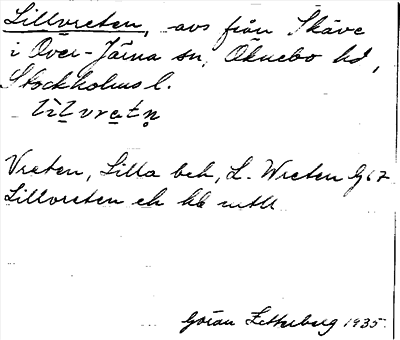 Lillvreten, avs från Skäve
i Över-Järna sn, Öknebo hd,
Stockholms l.
lìl vrètn̥
Vreten, Lilla beb, L. Wreten G 67
Lillvreten ek
Göran Zetterberg 1935.